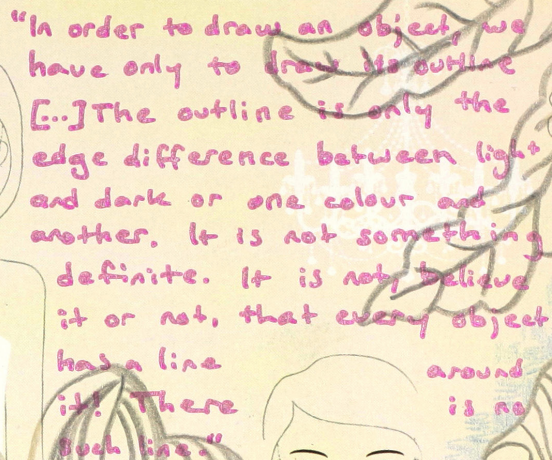 "In order to draw an object, we
have only to draw its outline
[...] The outline is only the
edge difference between light
and dark or one colour and
another. It is not something
definite. It is not, believe
it or not, that every object
has a line around
it! There is no
such line."